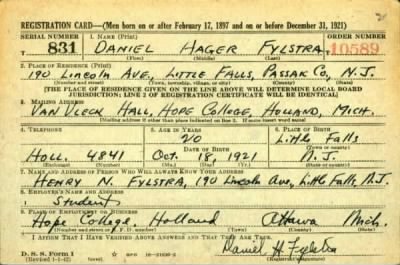 REGISTRATION CARD—(Men born on or after February 17, 1897 and on or before December 31, 1921)
SERIAL NUMBER 1. NAME (Print) ORDER NUMBER
831 DANIEL HAGER FYLSTRA 10589
(First) (Middle) (Last)
2. PLACE OF RESIDENCE (Print)
190 LINCOLN AVE, LITTLE FALLS, PASSAIC CO, N.J.
(Number and street) (Town, township, village, or city) (County) (State)
[THE PLACE OF RESIDENCE GIVEN ON THE LINE ABOVE WILL DETERMINE LOCAL BOARD
JURISDICTION; LINE 2 OF REGISTRATION CERTIFICATE WILL BE IDENTICAL]
3. MAILING ADDRESS
VAN VLECK HALL, HOPE COLLEGE, HOLLAND, MICH.
[Mailing address if other than place indicated on line 2. If same insert word same]
4. TELEPHONE 5. AGE IN YEARS 6. PLACE OF BIRTH
20 Little Falls
DATE OF BIRTH (Town or county)
HOLL. 4841 Oct. 18, 1921 N.J.
(Exchange) (Number) (Mo.) (Day) (Yr.) (State or country)
7. NAME AND ADDRESS OF PERSON WHO WILL ALWAYS KNOW YOUR ADDRESS
HENRY N. FYLSTRA, 190 Lincoln Ave, Little Falls, N.J.
8. EMPLOYER'S NAME AND ADDRESS
Student
9. PLACE OF EMPLOYMENT OR BUSINESS
Hope College, Holland Ottawa Mich.
(Number and street or R. F. D. number) (Town) (County) (State)
I AFFIRM THAT I HAVE VERIFIED ABOVE ANSWERS AND THAT THEY ARE TRUE.
D. S. S. Form 1 Daniel H. Fylstra
(Revised 1-1-42) (over)